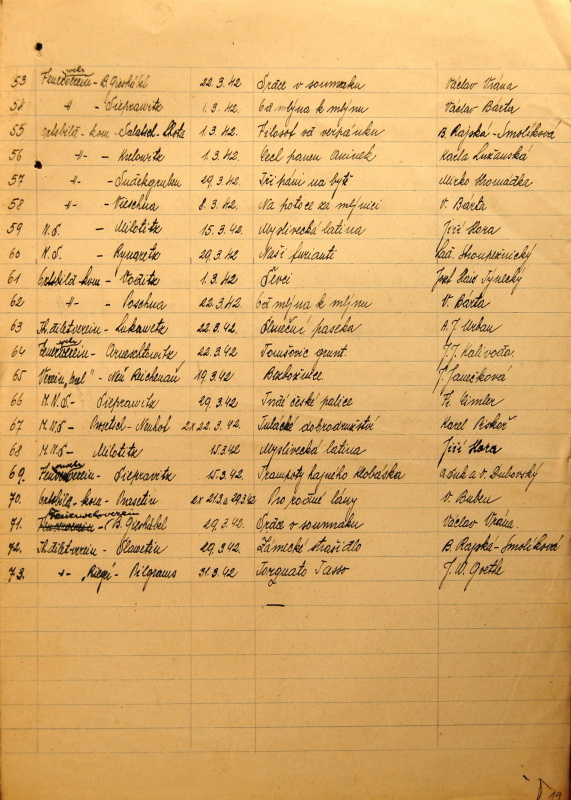 53 Feuerwehrverein - B. Gieshübel 22.3.42 Srdce v soumraku Václav Vrána
54 -"- - Sieprawitz 1.3.42. Od mlýna k mlýnu Václav Bárta
55 Ortsbild-kom - Salatsch-Lhota 1.3.42. Filosof va verpánku B. Rajská-Smolíková
56 -"- - Krelowitz 1.3.42. Cecl panen Aminek Karla Lužanská
57 -"- - 29.3.42. Tři páni na bytě Mirko Hromádka
58 -"- - Věschna 8.3.42. Na potoce za mlýnicí V. Bárta
59 N.S. - Milotitz 15.3.42 Myslivecká latina Jiří Hora
60 N.S. - Ryngretz 29.3.42 Naši furianti Lad. Stroupežnický
61 Ortsbild-kom - 1.3.42 Ševci Josef Týnecký
62 -"- - Poschna 22.3.42. Od mlýna k mlýnu V. Bárta
63 Th.diletverein - Lukawetz 22.3.42. Sluneční paseka A.J. Urban
64 Feuerwehrverein - 22.3.42 Tomšovic grunt. J.J. Kalivoda.
65 Verein, "Orel" - Neu Reichenau 19.3.42 Bezbožnice. J. Janečková
66 M.N.S - Sieprawitz 29.3.42 české palice Fr. Cimler
67 M.N.S - - Neuhof 2x 22.3.42. Tulácké dobrodružství Karel Piskoř
68 M.N.S - Milotitz 15.3.42 Myslivecká latina Jiří Hora
69. Feuerwehrverein - Sieprawitz 15.3.42. Trampoty hajného Klobáska a V. Dubovský
70. Ortsbild-kom - Onasetin 2x 21.3 a 29.3.42 Pro rodné lány V. Buben
71. Feuerwehrverein - (B. Gieshübel 29.3.42 Srdce v soumraku Václav Vrána.
72. Th.diletverein - Slawetin 29.3.42 Zámecké strašidlo B. Rajská-Smolíková
73. -"- "Riegr" - Pilgrams 31.3.42. Torquato Tasso J.W. Goethe
19